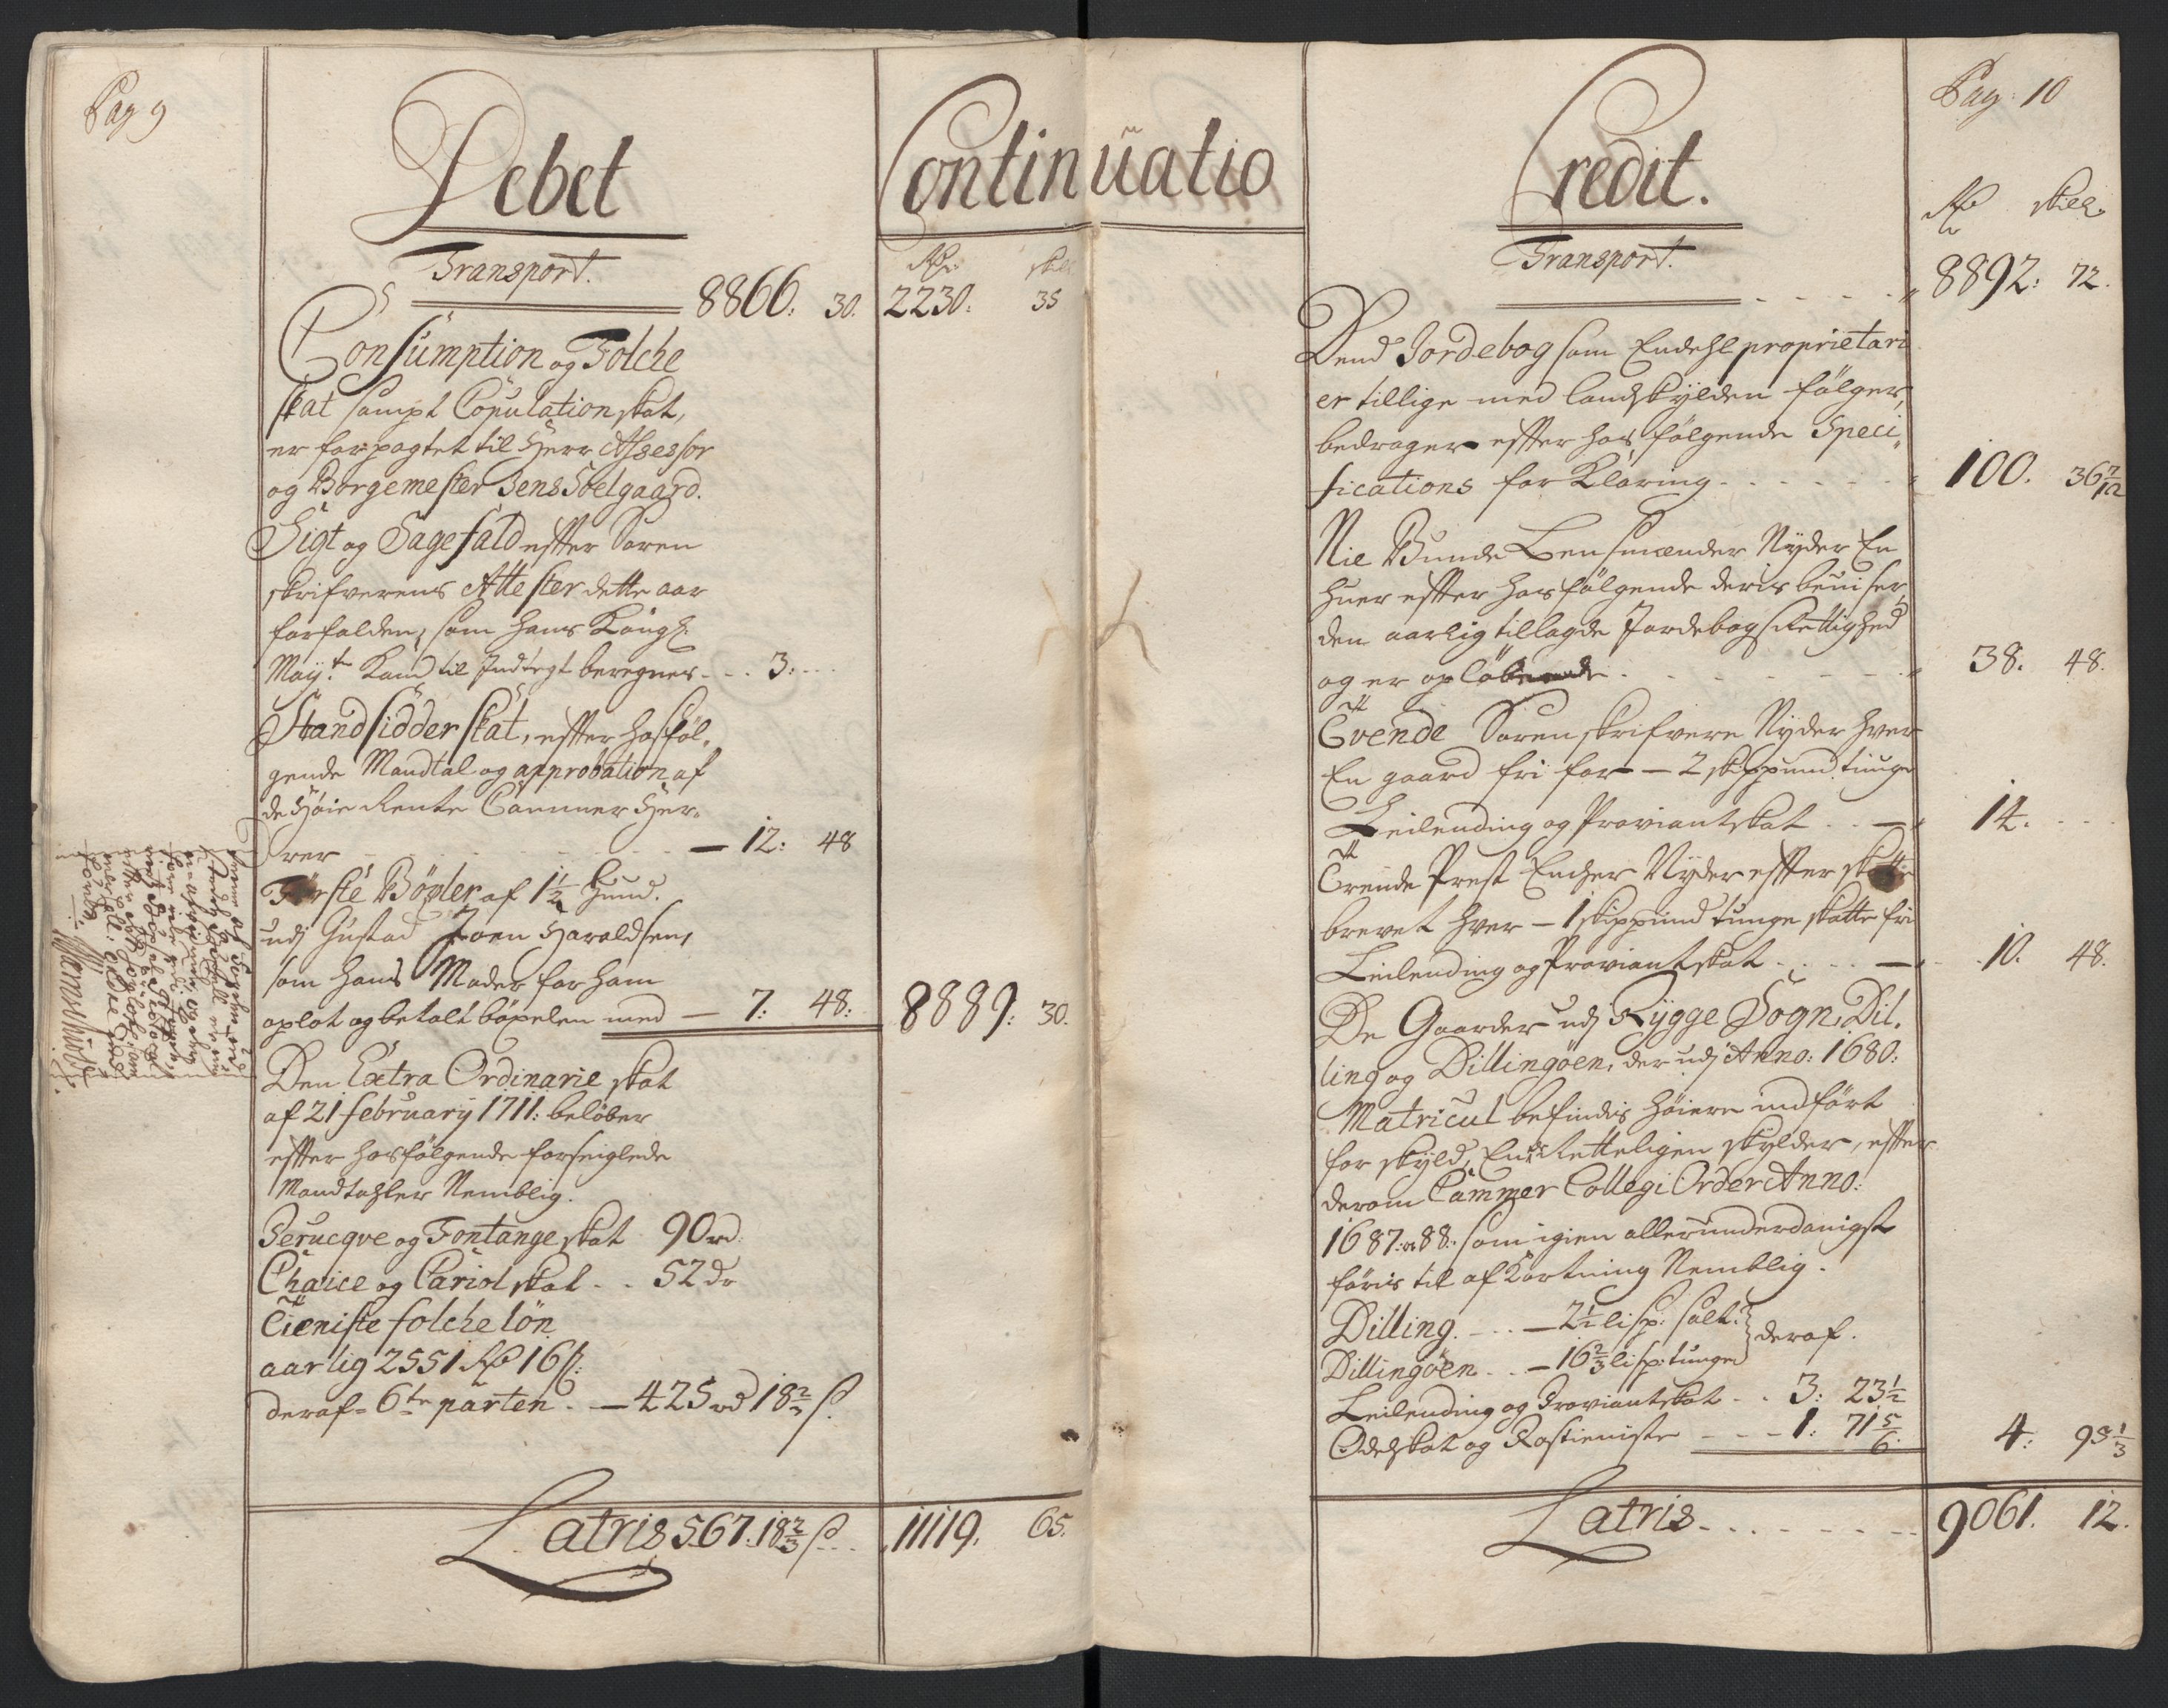 Pag 9
Debet
Continuatio
Transport.
Rdr skill
8866: 30. 2230. 35
Consumption og Folche
skat sampt Copulation skat,
er forpagtet til Herr Assessor
og Borgemester Jens Soelgaard.
Sigt og Sagefald effter Soren
skrifverens Attester dette aar
forfalden, som hans Kongl.
Mayt. Kand til Indtegt beregnes - - . 3: - - -
Strandsidder skat, effter hosføl,
gende Mandtal og approbation af
de Høie Rente Cammer Her,
rer - - - - - 12: 48
Første Bøxler af 1½ Hund.
udj Gustad Joen Haraldsen,
som hans Moder for ham
oplot og betalt böxelen med — 7: 48: 8889: 30.
Den Extra Ordinarie skat
af 21 february 1711: beløber
effter hosfølgende forseiglede
Mandtahler Nemblig.
Perucqve og Fontange skat 90 rd.
Chaice og Cariol skat . . 52 do
Tieniste folche løn
aarlig 2551 Rdr 16 s:
deraf 6te parten . — 425 rd 18⅔ s.
Latris 567. 18⅔ s. . . 11119. 65.
Pag: 10
Credit.
Rdr skill.
Transport.
- - - - 8892: 72.
Dend Jordebog som Endehl proprietari
er tillige med landskylden følger,
bedrager effter hos følgende Speci,
fications for Klaring - - - - - 100. 36 7/12
Nie Bunde Lensmænder Nyder En
huer effter hosfølgende deris beviser,
den aarlig tillagde Jordebogs Rettighed
og er opløbende - - - - - 38. 48.
Tvende Sorenskrifvere Nyder hver
En gaard fri for — 2 skippund tunge
Leilending og Proviantskat . . — 14. - -
Trende Prest Encher Nyder effter skatte
brevet hver — 1 skippund tunge skatte fri
Leilending og Proviantskat . . . . — 10. 48.
De Gaarder udj Rygge Sogn, Dil,
ling og Dillingøen, der udj Anno: 1680:
Matricul befindis høiere indført
for skyld, End Retteligen skylder, effter
derom Cammer Collegi Order Anno:
1687: og 88: som igien allerunderdanigst
føris til afkortning Nemblig.
Dilling. - - — 2½ lisp: salt } deraf.
Dillingøen . . — 16⅔ lisp: tunge
Leilending og Proviantskat - . 3: 23½
Odelskat og Rostieniste - - - 1: 71⅚ 4: 95⅓
Latris - - - - - 9061. 12.